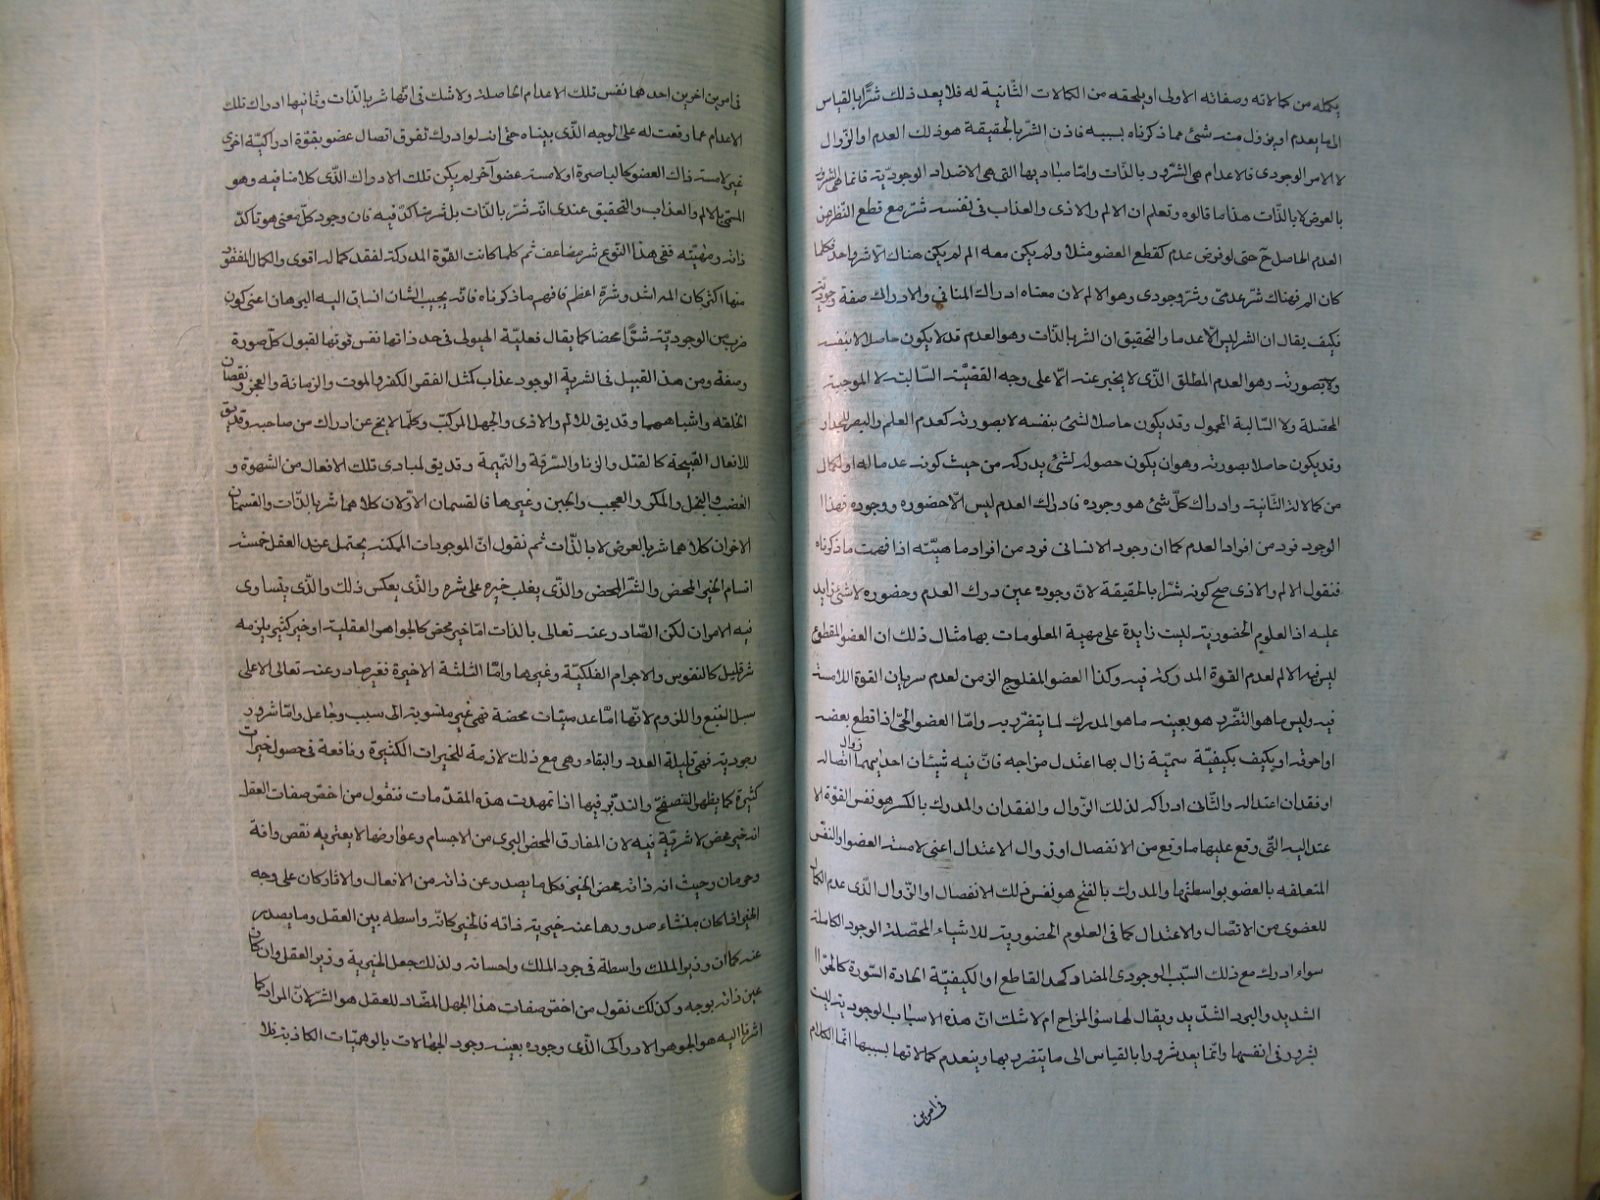 يكمله من كمالاته وصفاته الاولى او يلحقه من الكمالات الثانية له فلا يعد ذلك شرًّا بالقياس
الى ما يعدم او يزول منه شئ مما ذكرناه بسببه فاذن الشر بالحقيقة هو ذلك العدم او الزّوال
لا الامر الوجودى فالاعدام هى الشّرور بالذّات وامّا مباديها التى هى الاضداد الوجوديّة فانما هى الشرور
بالعرض لا بالذّات هذا ما قالوه وتعلم ان الالم والاذى والعذاب فى نفسه شرّ مع قطع النّظر من
العدم الحاصل حتى لو فرض عدم كقطع العضو مثلا ولم يكن معه الم لم يكن هناك الا شر واحد فكلما
كان الم فهناك شرّ عدمىّ وشرّ وجودى وهو الالم لان معناه ادراك المنافى والادراك صفة وجوديّة
فكيف يقال ان الشر ليس الّا عدما والتحقيق ان الشر بالذّات وهو العدم قد لا يكون حاصلا لا بنفسه
ولا بصورته وهو العدم المطلق الّذى لا يخبر عنه الّا على وجه القضيّة السّالبة لا الموجبة
المحصّلة ولا السّالبة المحمول وقد يكون حاصلا لشئ بنفسه لا بصورته كعدم العلم والبصر للجدار
وقد يكون حاصلا بصورته وهو ان يكون حصوله لشئ يدركه من حيث كونه عدما له او لكمال
من كمالاته الثّانية وادراك كلّ شئ هو وجوده فادراك العدم ليس الّا حضوره ووجوده فهذا
الوجود فرد من افراد العدم كما ان وجود الانسانى فرد من افراد ماهيّته اذا فهمت ما ذكرناه
فنقول الالم والاذى صح كونه شرّا بالحقيقة لانّ وجوده عين درك العدم وحضوره لا شئ زايد
عليه اذ العلوم الحضورية ليست زايدة على مهية المعلومات بها مثال ذلك ان العضو المقطوع
ليس فيه الالم لعدم القوة المدركة فيه وكذا العضو المفلوج الزمن لعدم سريان القوة اللامسة
فيه وليس ما هو التفرد هو بعينه ما هو المدرك لما يتفرد به وامّا العضو الحىّ اذا قطع بعضه
او احرقه او يكيف بكيفيّة سميّة زال بها اعتدل مزاجه فانّ فيه شيئان احديهما زوال اتّصاله
او فقدان اعتداله والثّانى ادراكه لذلك الزّوال والفقدان والمدرك بالكسر هو نفس القوّة الا
عتداليه الّتى وقع عليها ما وقع من الانفصال او زوال الاعتدال اعنى لامسة العضو او النفس
المتعلقه بالعضو بواسطتها والمدرك بالفتح هو نفس ذلك الانفصال او الزّوال الّذى عدم الكمال
للعضوى من الاتّصال والاعتدال كما فى العلوم الحضوريّة للاشياء المحصّلة الوجود الكاملة
سواء ادرك مع ذلك السّبب الوجودى المضاد كحد القاطع او الكيفيّة الحادة السّورة كالحرّ ا
الشديد والبرد الشّديد ويقال لها سؤ المزاح ام لا شك انّ هذه الاسباب الوجودية ليست
بشرور فى انفسها وانّما يعد شرورا بالقياس الى ما يتضرد بها وينعدم كمالاتها بسببها انّما الكلام
فى امرين
فى امرين اخرين احدهما نفس تلك الاعدام الحاصلة ولا شك فى انّها شر بالذّات وثانيها ادراك تلك
الاعدام عما وقعت له على الوجه الّذى بيناه حتى انه لو ادرك تفرق اتصال عضو بقوّة ادراكيّة اخرى
غير لامسة ذاك العضو كالباصرة او لامسة عضو آخر لم يكن تلك الادراك الّذى كلامنا فيه وهو
المسمى بالالم والعذاب والتحقيق عندى انّه شرّ بالذّات بل شر متاكّد فيه فان وجود كلّ معنى هو تاكد
ذاته ومهيّته ففى هذا النّوع شر مضاعف ثم كلما كانت القوّة المدركة لفقد كماله اقوى والكمال المفقود
منها اكثر كان المه اشد وشرّه اعظم فافهم ما ذكرناه فانّه يجيب الشان انساق اليه البرهان اعنى كون
ضرب من الوجوديّة شرًّا محضا كما يقال فعليّة الهيولى فى حد ذاتها نفس قوتها لقبول كلّ صورة
وصفة ومن هذا القبيل فى الشرية الوجود عذاب كمثل الفقر الكفر والموت والزمانة والعجز ونقصان
الخلقه واشباههما وقد يق للالم والاذى والجهل المركّب وكلّما لا يخ عن ادراك من صاحبه وقد يق
للافعال القبيحة كالقتل والزنا والسّرقة والنّميمة وقد يق لمبادى تلك الافعال من الشهوة و
الغضب والبخل والمكر والعجب والجبن وغيرها فالقسمان الاوّلان كلاهما شر بالذّات والقسمان
الاخران كلاهما شر بالعرض لا بالذّات ثم نقول انّ الموجودات الممكنة يحتمل عند العقل خمسة
اقسام الخير المحض والشرّ المحض والذّى يغلب خيره على شره والذّى بعكس ذلك والذّى يتساوى
فيه الامران لكن الصّادر عنه تعالى بالذات امّا خير محض كالجواهر العقلية او خير كثير يلزمه
شر قليل كالنفوس والاجرام الفلكيّة وغيرها وامّا الثلثة الاخيرة فغير صادر عنه تعالى الا على
سبيل التبع واللزوم لانّها امّا عدميّات محضة فهى غير منسوبة الى سبب وجاعل وامّا شرور
وجودية فهى قليلة العدد والبقاء وهى مع ذلك لازمة للخيرات الكثيرة ونافعة فى حصول خيرات
كثيرة كما يظهر للتصفّح والتدبّر فيها اذا تمهدت هذه المقدّمات فنقول من اخصّ صفات العقل
انه خير محض لا شريّة فيه لان المفارق المحض البرى من الاجسام وعوارضها لا يعتريه نقص وافة
وحرمان وحيث انه ذاته محض الخير فكل ما يصدر عن ذاته من الافعال والاثار كان على وجه
الخير اذ كان منشاء صدورها عنه خيرية ذاته فالخير كانّه واسطه بين العقل وما يصدر
عنه كما ان وزير الملك واسطة فى جود الملك واحسانه ولذلك جعل الخيرية وزير العقل وان كان
عين ذاته بوجه وكذلك نقول من اخصّ صفات هذا الجهل المضّاد للعقل هو الشرّ لانّ المراد كما
اشرنا اليه هو الجوهر الادراكى الّذى وجوده بعينه وجود الجهالات بالوهميّات الكاذبة فلا